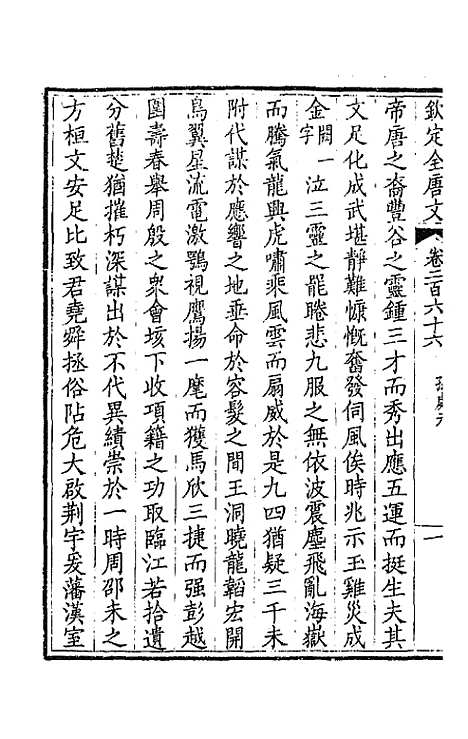 欽定全唐文 卷三百六十六 一
帝唐之裔豐谷之靈鍾三才而秀出應五運而挺生夫其
文足化成武堪靜難慷慨奮發伺風俟時兆示玉雞災成
金闕一字泣三靈之罷睠悲九服之無依波震塵飛亂海嶽
而騰氣龍興虎嘯乘風雲而扇威於是九四猶疑三千未
附代謀於應響之地垂命於容髮之間王洞曉龍韜宏開
鳥翼星流電激鶚視鷹揚一麾而獲馬欣三捷而强彭越
圍壽春舉周殷之衆會垓下收項籍之功取臨江若拾遺
分舊楚猶摧朽深謀出於不代異績崇於一時周邵未之
方桓文安足比致君堯舜拯俗阽危大啟荆宇爰藩漢室